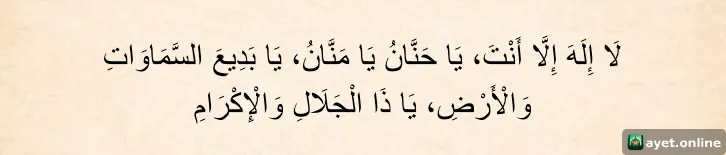 لَا إِلَهَ إِلَّا أَنْتَ، يَا حَنَّانُ يَا مَنَّانُ، يَا بَدِيعَ السَّمَاوَاتِ
وَالْأَرْضِ، يَا ذَا الْجَلَالِ وَالْإِكْرَامِ
ayet.online